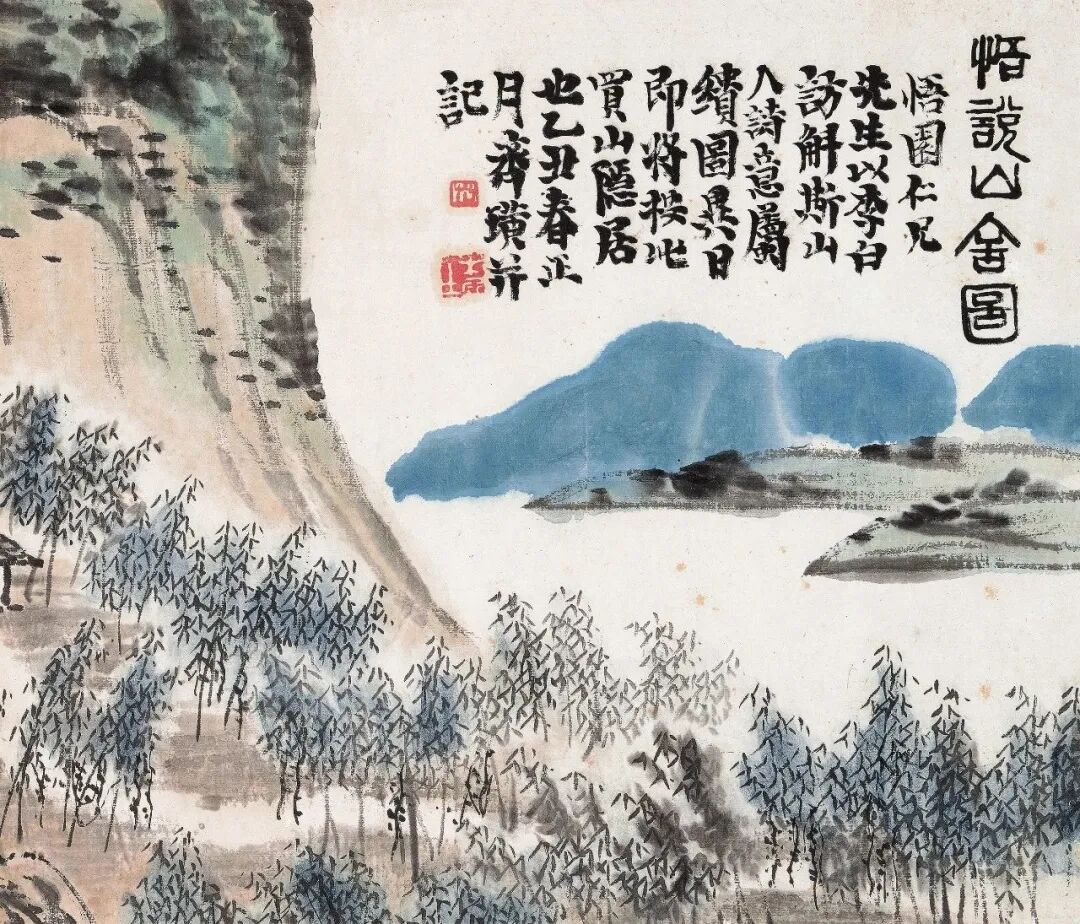 悟說山舍圖
悟園仁兄
先生以李白
訪斛斯山
人詩意屬
繢圖異日
即將按此
買山隱居
也乙丑春正
月齊璜并
記